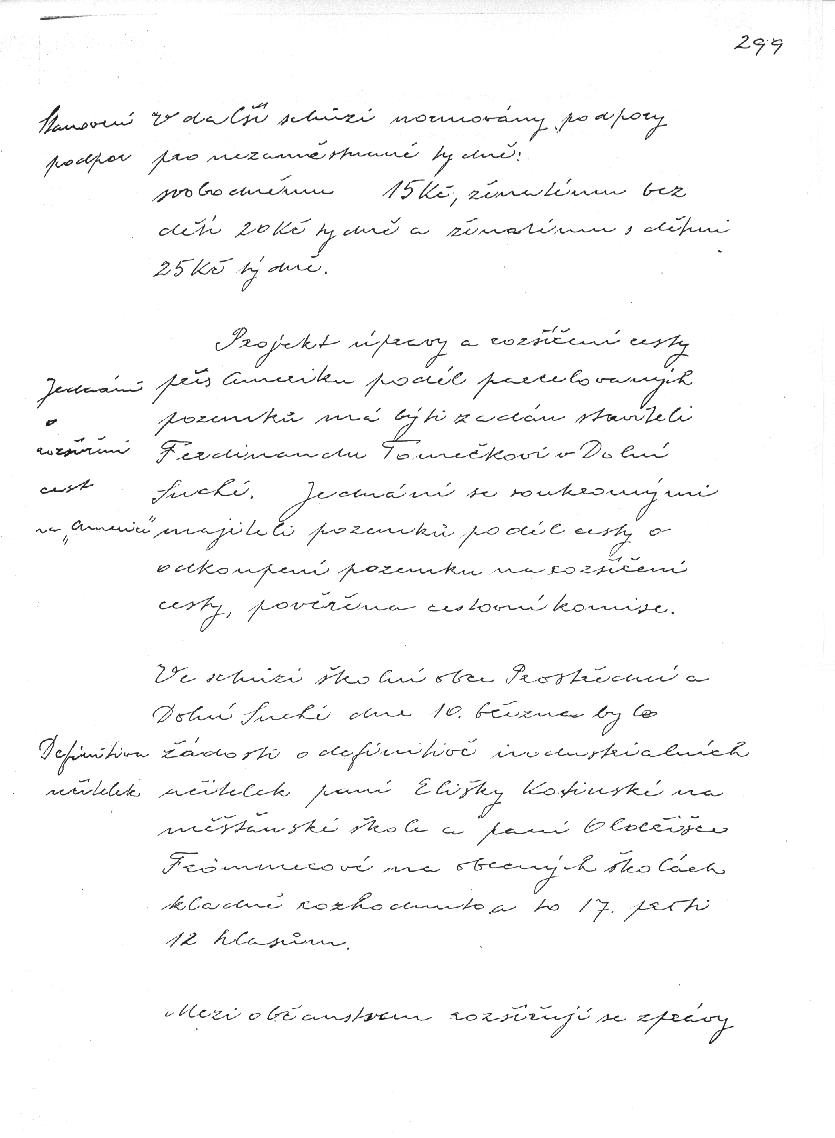 299
Stanovení
podpor
V další schůzi normovány podpory
pro nezaměstnané týdně:
svobodnému 15 Kč, ženatému bez
dětí 20 Kč týdně a ženatému s dětmi
25 Kč týdně.
Jednání
o
rozšíření
cest
na „Americe"
Projekt úpravy a rozšíření cesty
přes Ameriku podél parcelovaných
pozemků má býti zadán staviteli
Ferdinandu Tomečkovi v Dolní
Suché. Jednání se soukromými
majiteli pozemků podél cesty o
odkoupení pozemku na rozšíření
cesty, pověřena cestovní komise.
Definitiva
učitelek
Ve schůzi školní obce Prostřední a
Dolní Suché dne 10. března bylo
žádosti o definitivě industriálních
učitelek paní Elišky Kosinské na
měšťanské škole a paní
Frömmerové na obecných školách
kladně rozhodnuto, a to 17. proti
12 hlasům.
Mezi občanstvem rozšiřují se zprávy